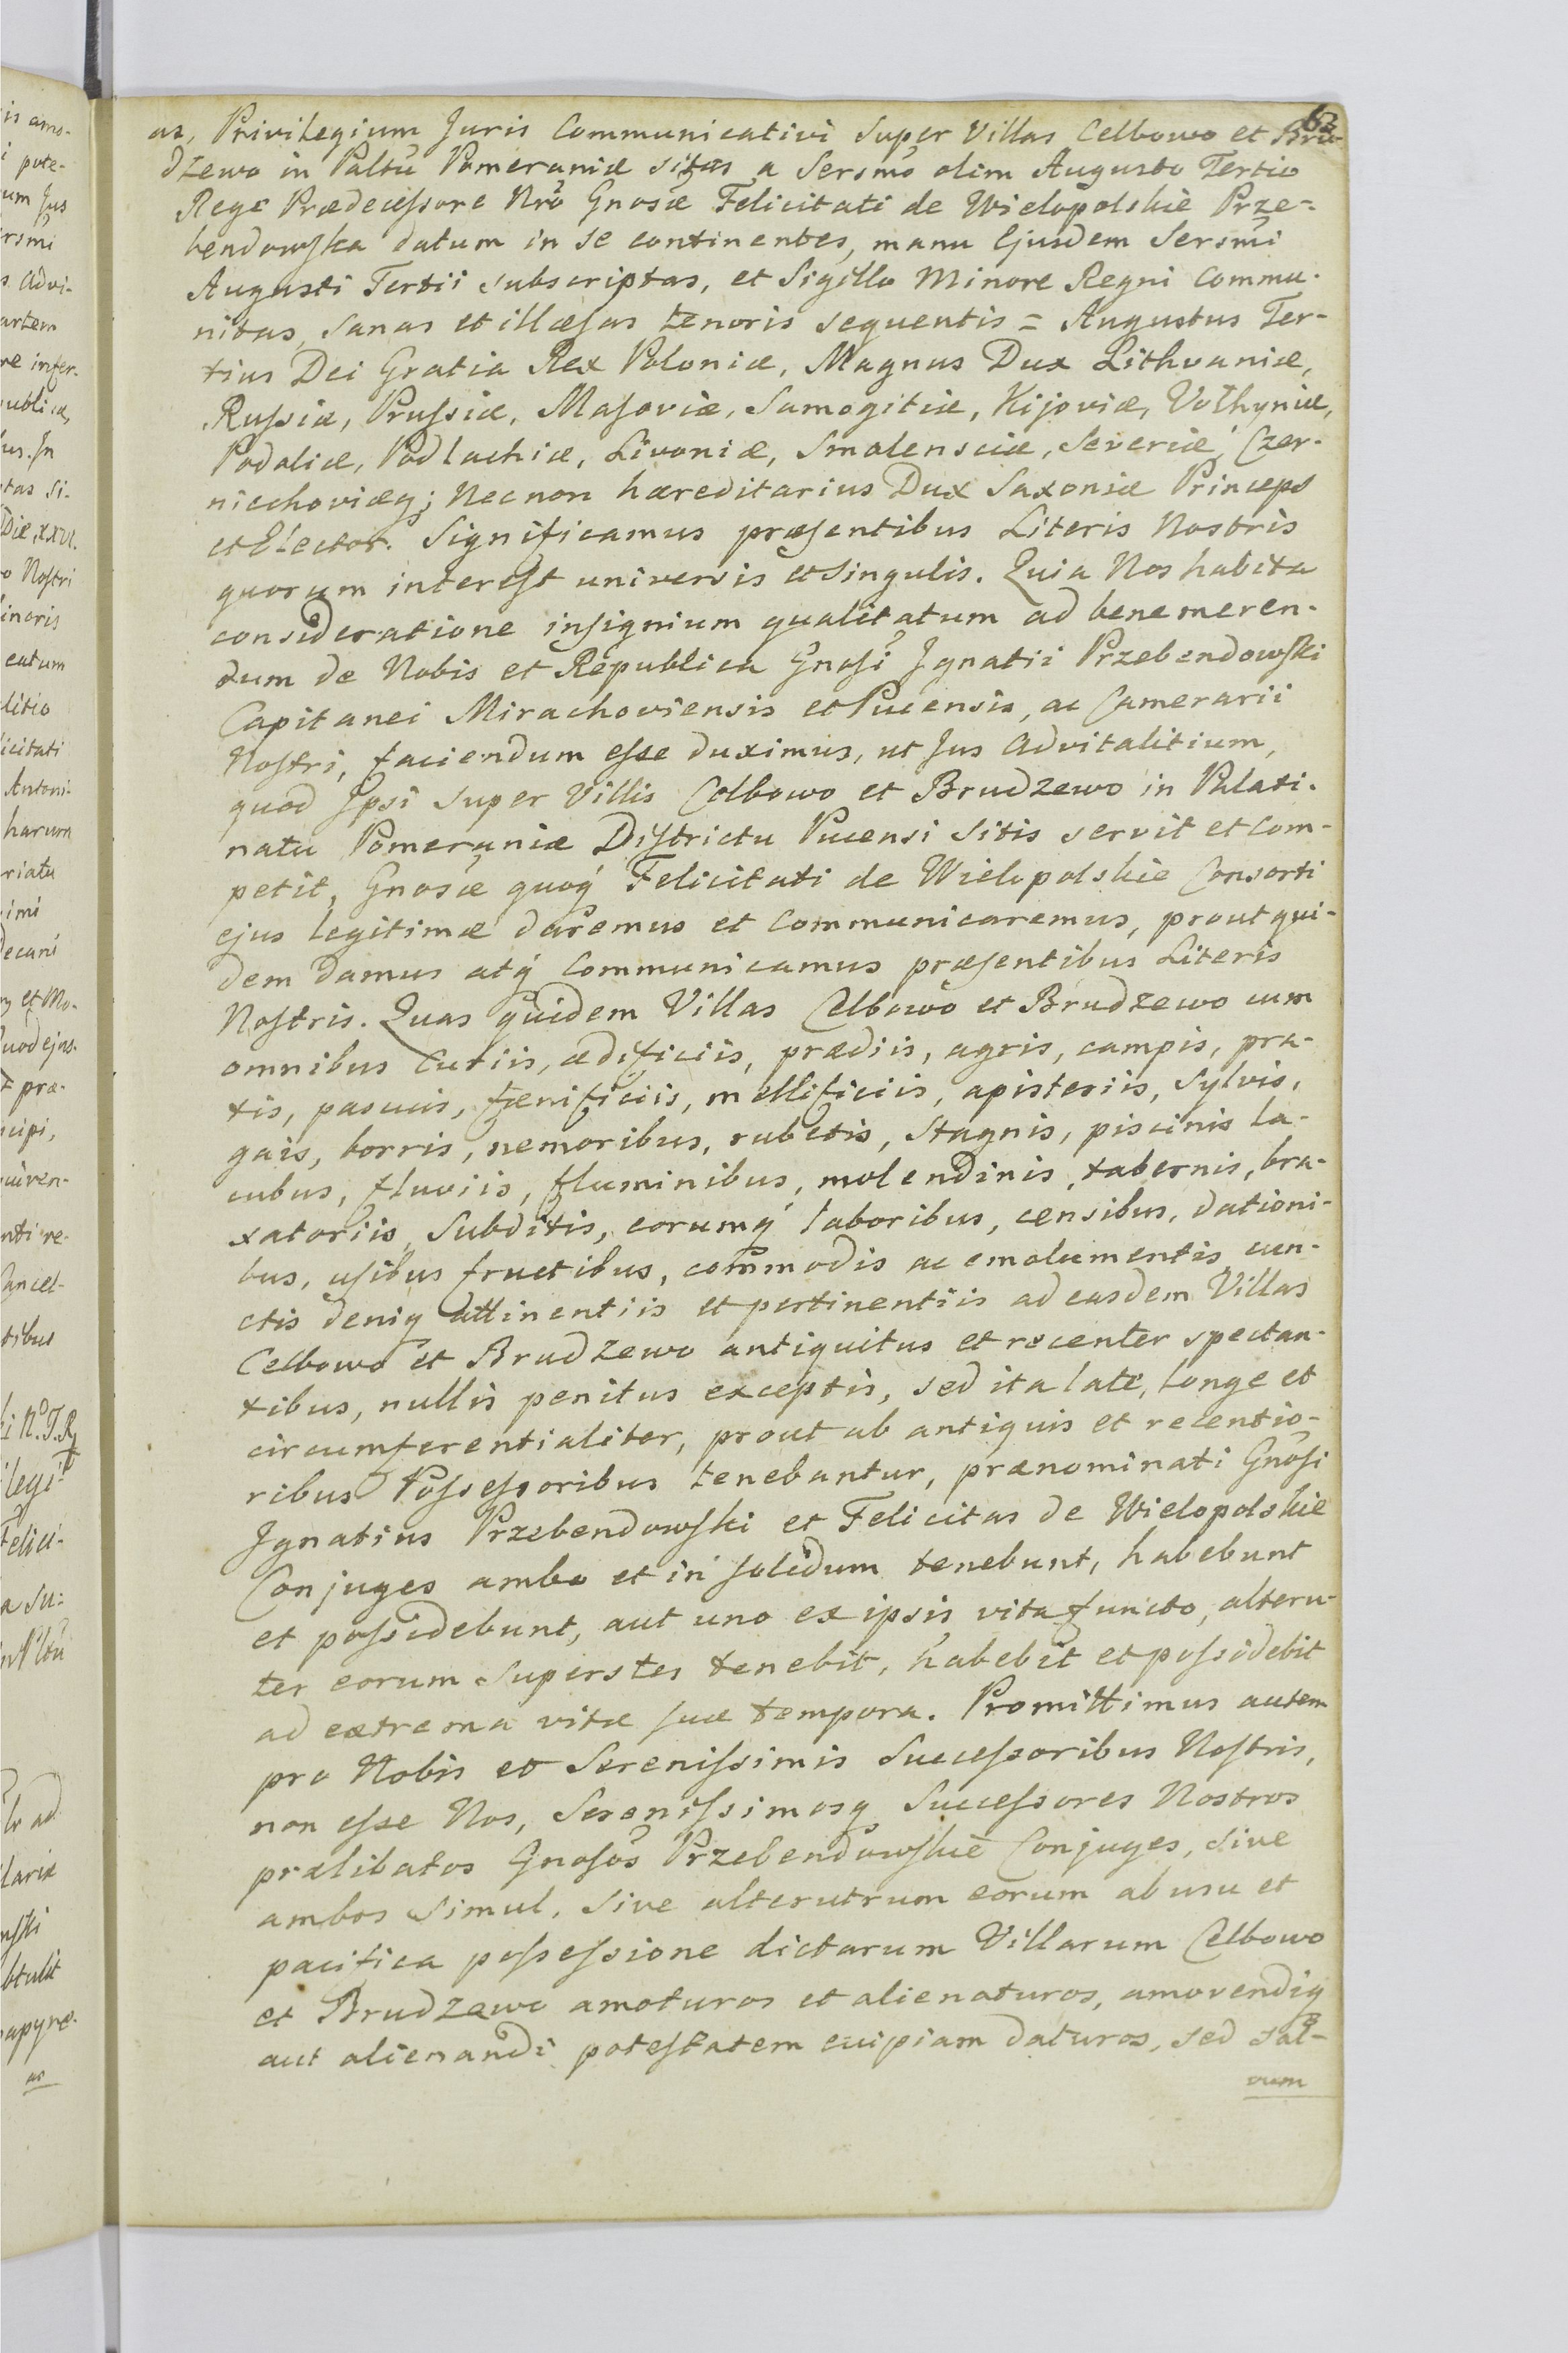 63
as, Privilegium Juris Communicativi Super Villas Celbowo et Bru-
dzewo in Paltũ Pomeraniæ sitas a Sersmo olim Augusto Tertio
Rege Prædecessore Nrõ Gnosæ Felicitati de Wielopolskie Prze-
bendowska datum in se continentes, manu Ejusdem Sersmi
Augusti Tertii subscriptas, et Sigillo Minore Regni Commu-
nitas, Sanas et illæsas tenoris sequentis = Augustus Ter-
tius Dei Gratia Rex Poloniæ, Magnus Dux Lithvaniæ,
Russiæ, Prussiæ, Masoviæ, Samogitiæ, Kijoviæ, Volhyniæ,
Podoliæ, Podlachiæ, Livoniæ, Smolensciæ, Severiæ, Czer-
niechoviæq; Necnon hæreditarius Dux Saxoniæ Princeps
et Elector. Significamus præsentibus Literis Nostris
quorum interest universis et singulis. Quia Nos habita
consideratione insignium qualitatum ad bene meren-
dum de Nobis et Republica Gnosi Ignatii Przebendowski
Capitanei Mirachoviensis et Pucensis, ac Camerarii
Nostri, faciendum esse duximus, ut Jus Advitalitium,
quod Ipsi Super Villis Celbowo et Brudzewo in Palati-
natu Pomeraniæ Districtu Pucensi Sitis servit et com-
petit, Gnosæ quoq Felicitati de Wielopolskie Consorti
ejus legitimæ daremus et Communicaremus, prout qui-
dem damus atq Communicamus præsentibus Literis
Nostris. Quas quidem Villas Celbowo et Brudzewo cum
omnibus Curiis, ædificiis, prædiis, agris, campis, pra-
tis, pascuis, fænificiis, mellificiis, apisteriis, Sylvis,
gais, borris, nemoribus, rubetis, Stagnis, piscinis la-
cubus, fluviis, fluminibus, molendinis, tabernis, bra-
xatoriis, Subditis, eorumq laboribus, censibus, dationi-
bus, usibus fructibus, commodis ac emolumentis cun-
ctis deniq attinentiis et pertinentiis ad easdem Villas
Celbowo et Brudzewo antiquitus et recenter spectan-
tibus, nullis penitus exceptis, sed ita late, longe et
circumferentialiter, prout ab antiquis et recentio-
ribus Possessoribus tenebantur, prænominati Gnosi
Ignatius Przebendowski et Felicitas de Wielopolskie
Conjuges ambo et in solidum tenebunt, habebunt
et possidebunt, aut uno ex ipsis vita functo, alteru-
ter eorum superstes tenebit, habebit et possidebit
ad extrema vitæ suæ tempora. Promittimus autem
pro Nobis et Serenissimis Successoribus Nostris,
non esse Nos, Serenissimosq Successores Nostros
prælibatos Gnosos Przebendowskie Conjuges, sive
ambos simul, sive alterutrum eorum ab usu et
pacifica possessione dictarum Villarum Celbowo
et Brudzewo amoturos et alienaturos, amovendiq
aut alienandi potestatem cuipiam daturos, sed sal-
vum